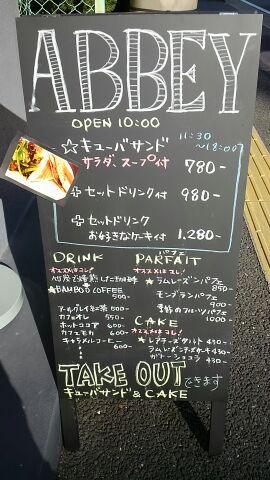 ABBEY
OPEN 10:00
11:30
～18:00
☆キューバサンド
サラダ、スープ付 780-
＋セットドリンク付 980-
＋セットドリンク
お好きなケーキ付 1,280-
DRINK
オススメはコレ!
で焙煎した
★BAMBOO COFFEE
500-
アールグレイ茶 500-
カフェオレ 550-
ホットココア 600-
カフェモカ 600-
キャラメルコーヒー
600-
パフェ
PARFAIT
オススメはコレ!
★ラムレーズンパフェ
850-
モンブランパフェ
900
季節のフルーツパフェ
1000
CAKE
オススメはコレ!
★レアチーズタルト 430-
ラムレーズンチーズケーキ 430-
ガトーショコラ 430-
TAKE OUT できます
キューバサンド & CAKE